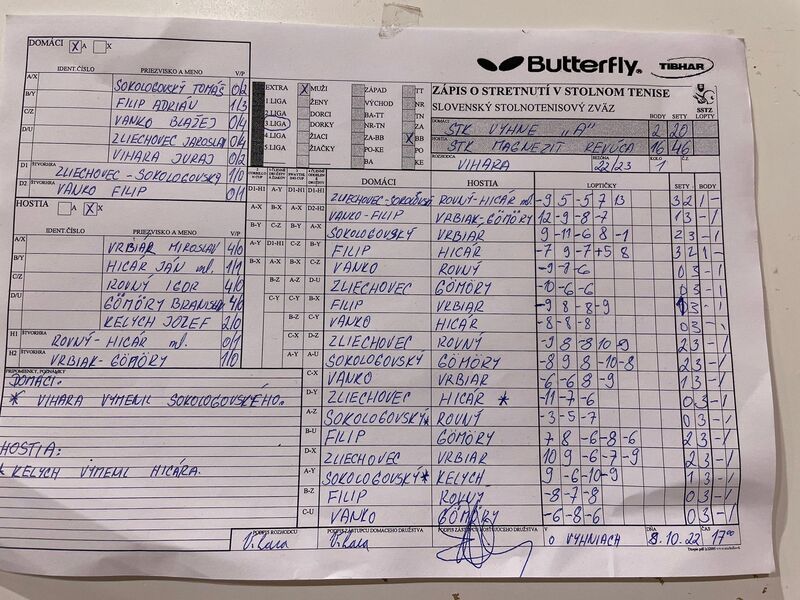 DOMÁCI X A X
IDENT.ČÍSLO PRIEZVISKO A MENO V/P
A/X SOKOLOGOVSKÝ TOMÁŠ 0/2
B/Y FILIP ADRIÁN 1/3
C/Z VANKO BLAŽEJ 0/4
D/U ZLIECHOVEC JAROSLAV 0/4
VIHARA JURAJ 0/2
D1 ŠTVORHRA ZLIECHOVEC - SOKOLOGOVSKÝ 1/0
D2 VANKO FILIP 0/1
HOSTIA A X
IDENT.ČÍSLO PRIEZVISKO A MENO V/P
VRBIAR MIROSLAV 4/0
B/Y HICÁR JÁN ml. 1/1
C/Z ROVNÝ IGOR 4/0
D/U GÖMÖRY BRANISLAV 4/0
KELYCH JOZEF 2/0
H1 ŠTVORHRA ROVNÝ - HICÁR ml. 0/1
H2 ŠTVORHRA VRBIAK - GÖMÖRY 1/0
PRIPOMIENKY, POZNÁMKY
DOMÁCI:
* VIHARA VYMENIL SOKOLOGOVSKÉHO.
HOSTIA:
* KELYCH VYMENIL HICÁRA.
Butterfly TIBHAR
EXTRA X MUŽI ZÁPAD TT
1 LIGA ŽENY VÝCHOD NR
2 LIGA DORCI BA-TT ZA
3 LIGA DORKY NR-TN
4 LIGA ŽIACI ZA-BB X BB
5 LIGA ŽIAČKY PO-KE PO
BA KE
ZÁPIS O STRETNUTÍ V STOLNOM TENISE
SLOVENSKÝ STOLNOTENISOVÝ ZVÄZ SSTZ
BODY SETY LOPTY
DOMÁCI STK VYHNE "A" 2 20
HOSTIA STK MAGNEZIT REVÚCA 16 46
ROZHODCA VIHARA SEZÓNA 22/23 KOLO 1
DOMÁCI HOSTIA LOPTIČKY SETY BODY
ZLIECHOVEC-SOKOLOGOVSKÝ ROVNÝ-HICÁR ml. -9 5 -5 7 13 3 2 1 -
VANKO-FILIP VRBIAK-GÖMÖRY 12 -9 -8 -7 1 3 - 1
SOKOLOGOVSKÝ VRBIAR -9 -11 -6 8 -1 2 3 - 1
FILIP HICÁR -7 9 -7 +5 8 3 2 1 -
VANKO ROVNÝ -9 -8 -6 0 3 - 1
ZLIECHOVEC GÖMÖRY -10 -6 -6 0 3 - 1
FILIP VRBIAR -9 8 -8 -9 1 3 - 1
VANKO HICÁR -8 -8 -8 0 3 - 1
ZLIECHOVEC ROVNÝ -9 8 -8 10 -9 2 3 - 1
SOKOLOGOVSKÝ GÖMÖRY -8 9 8 -10 -8 2 3 - 1
VANKO VRBIAR -6 -6 8 -9 1 3 - 1
ZLIECHOVEC HICÁR * -11 -7 -6 0 3 - 1
SOKOLOGOVSKÝ* ROVNÝ -3 -5 -7 0 3 - 1
FILIP GÖMÖRY 7 8 -6 -8 -6 2 3 - 1
ZLIECHOVEC VRBIAR 10 9 -6 -7 -9 2 3 - 1
SOKOLOGOVSKÝ* KELYCH 9 -6 -10 -9 1 3 - 1
FILIP ROVNÝ -8 -7 -8 0 3 - 1
VANKO GÖMÖRY -6 -8 -6 0 3 - 1
PODPIS ROZHODCU PODPIS ZÁSTUPCU DOMÁCEHO DRUŽSTVA PODPIS ZÁSTUPCU HOSŤUJÚCEHO DRUŽSTVA V DŇA ČAS
Vihara Vihara VYHNIACH 8.10.22 1700